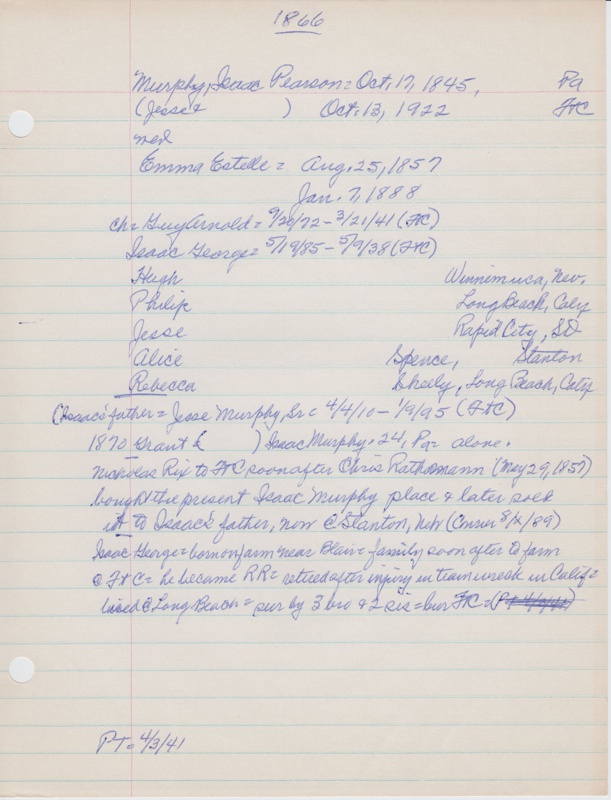 1866
Murphy, Isaac Pearson = Oct. 17, 1845, Pa
(Jesse + ) Oct. 13, 1922 FtC
med
Emma Estelle = Aug. 25, 1857
Jan. 7, 1888
ch = Guy Arnold = 9/20/72 - 3/21/41 (FtC)
Isaac George = 5/19/85 - 5/9/38 (FtC)
Hugh Winnemuca, Nev.
Philip Long Beach, Calif
Jesse Rapid City, SD
Alice Spence, Stanton
Rebecca Sheely, Long Beach, Calif
(Isaac's father = Jesse Murphy, Sr = 4/4/10 - 1/9/95 (FtC)
1870 Grant ( ) Isaac Murphy = 24, Pa = alone.
Nicholas Rix to FtC soon after Chris Rathmann (May 29, 1857)
bought the present Isaac Murphy place & later sold
it to Isaac's father, now @ Stanton, Neb (8/2/89)
Isaac George = born on farm near Blair = family soon after to farm
@ FtC = he became RR = retired after injury in train wreck in Calif =
lived @ Long Beach = sur by 3 bro & 2 sis = bur FtC =
PT = 4/3/41